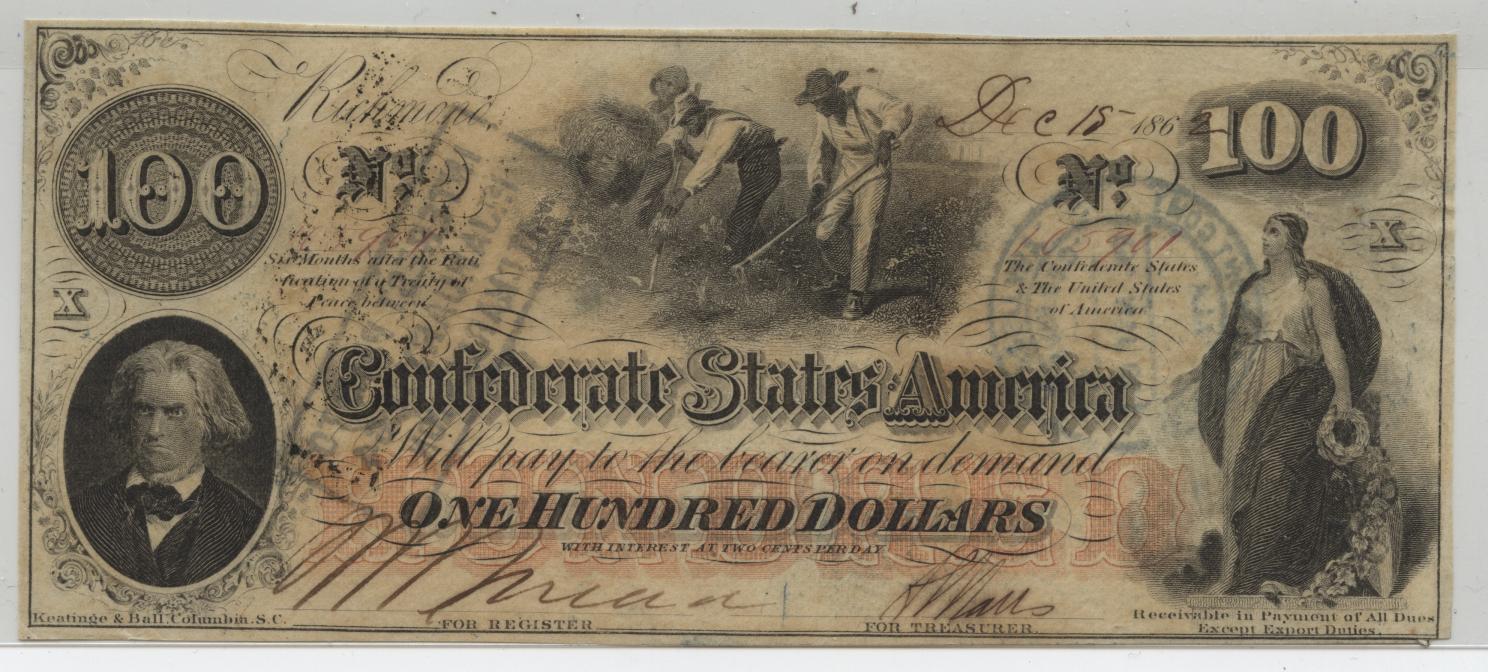 100
Richmond,
Dec 15 1862
100
No.
No.
105901
Six Months after the Rati
fication of a Treaty of
Peace between
The Confederate States
& The United States
of America
X
X
THE
Confederate States America
Will pay to the bearer on demand
HUNDRED
ONE HUNDRED DOLLARS
WITH INTEREST AT TWO CENTS PER DAY
Keatinge & Ball, Columbia, S.C.
FOR REGISTER
FOR TREASURER
Receivable in Payment of All Dues
Except Export Duties.